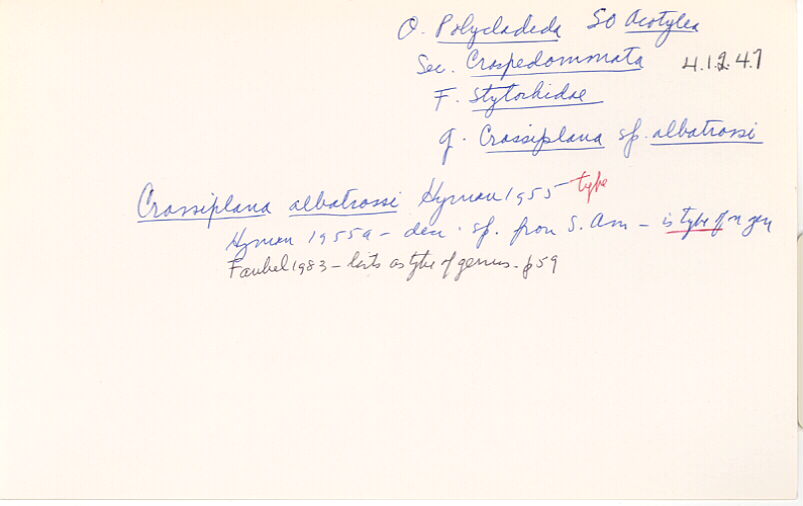 O. Polycladida SO Acotylea
Sec. Craspedommata 4.1.2.4.7
F. Stylochidae
g. Crassiplana sp. albatrossi
Crassiplana albatrossi Hyman 1955 type
Hyman 1955a - desc. sp. from S. Am - is type of n gen
Faubel 1983 - lists as type of genus. p59